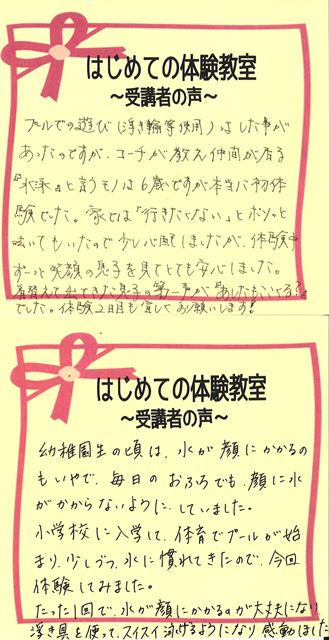 はじめての体験教室
～受講者の声～
プールでの遊び(浮き輪等使用)はした事が
あったのですが、コーチが教え仲間が居る
『水泳』と言うモノは6歳ですが本当に初体
験でした。家では「行きたくない」とボソッと
呟いてもいたので少し心配しましたが、体験中
ずーっと笑顔の息子を見てとても安心しました。
着替えて出てきた息子の第一声が『あしたもいくる?』
でした。体験2日目も宜しくお願いします!
はじめての体験教室
～受講者の声～
幼稚園生の頃は、水が顔にかかるの
もいやで、毎日のおふろでも、顔に水
がかからないように、していました。
小学校に入学して、体育でプールが始
まり、少しづつ、水に慣れてきたので、今回
体験してみました。
たった1回で、水が顔にかかるのが大丈夫になり
浮き具を使って、スイスイ泳げるようになり感動しました